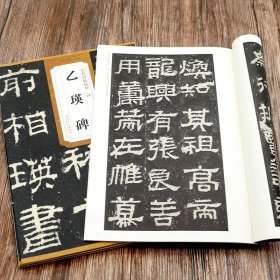 煥知其祖高帝
龍興有張良善
用籌策在帷幕
乙瑛碑
前相瑛書